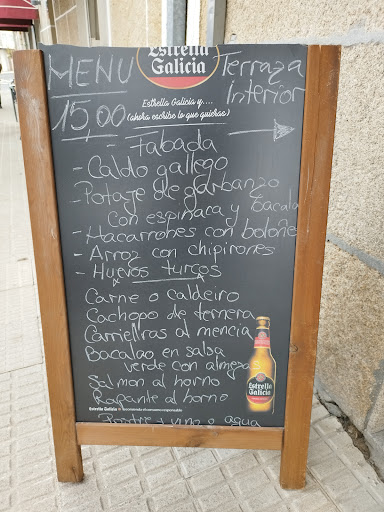 MENU
15,00
Estrella
Galicia
Terraza
Interior
Estrella Galicia y....
(ahora escribe lo que quieras)
- Fabada
- Caldo gallego
- Potaje de garbanzo
con espinaca y Bacala
- Macarrones con boloñe
- Arroz con chipirones
- Huevos turcos
Carne o caldeiro
Cachopo de ternera
Carriellras al mencia
Bacalao en salsa
verde con almejas
Salmon al horno
Rapante al horno
Postre y vino o agua
Estrella
Galicia
Estrella Galicia recomienda el consumo responsable